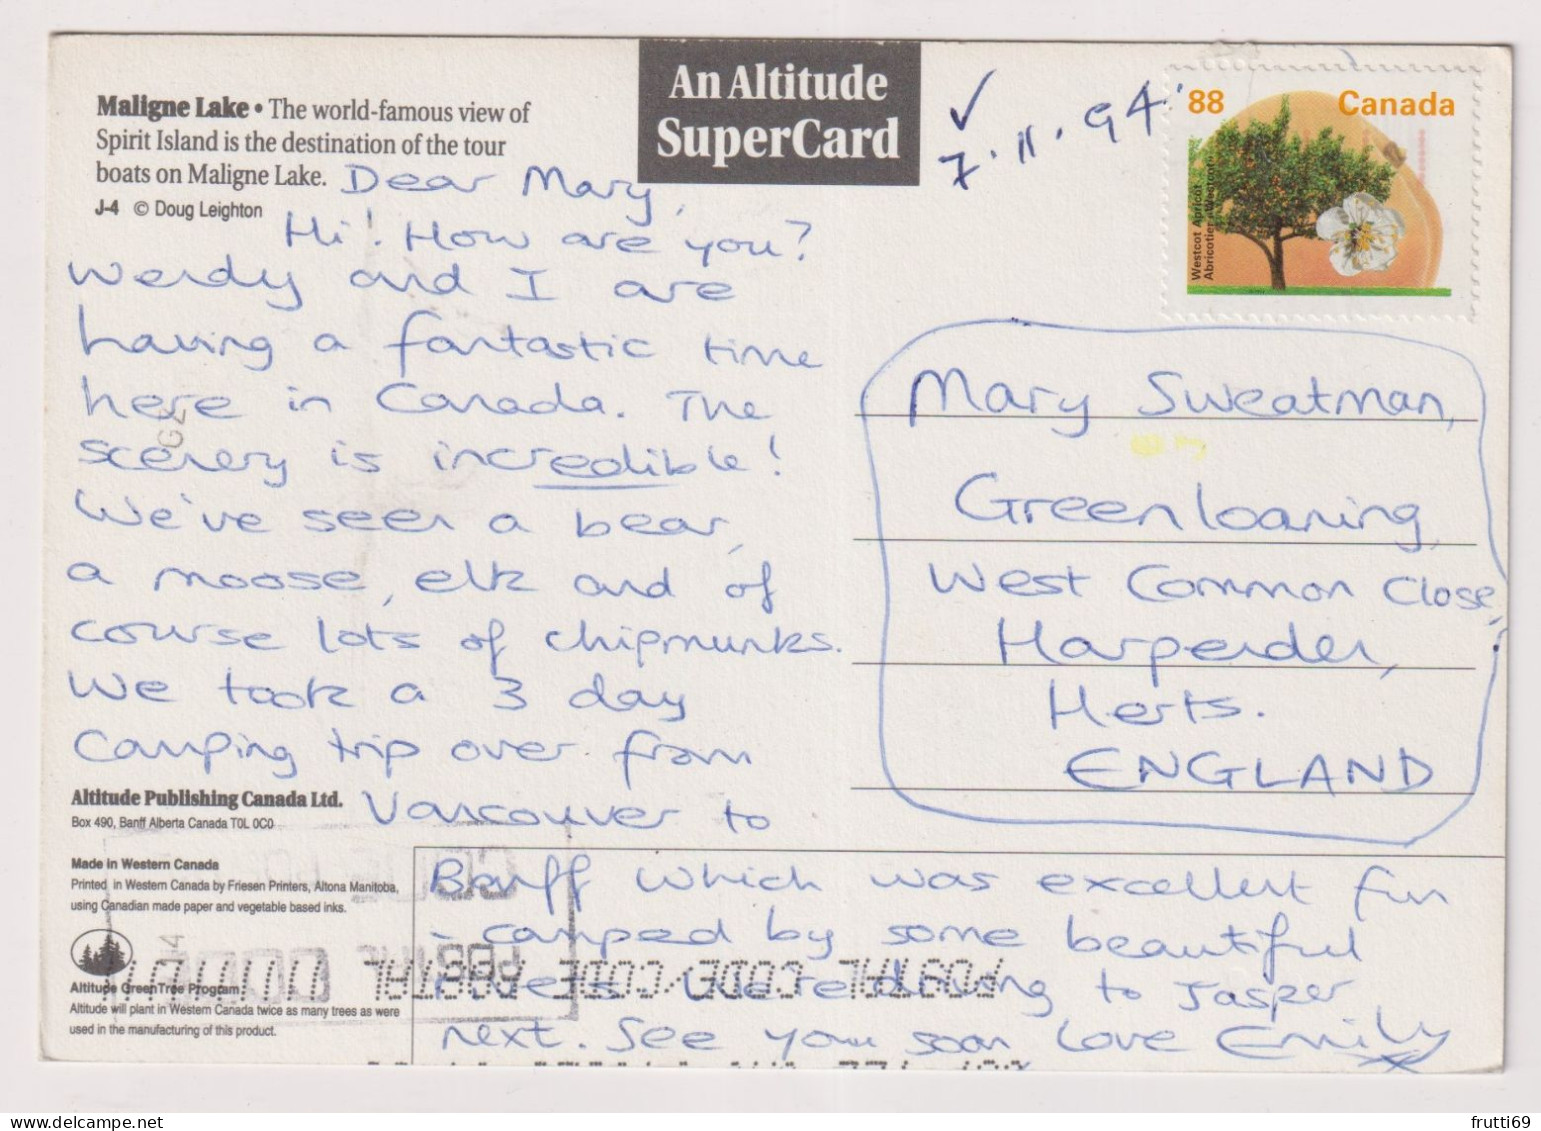 Maligne Lake • The world-famous view of
Spirit Island is the destination of the tour
boats on Maligne Lake.
J-4 © Doug Leighton
An Altitude
SuperCard
✓
7.11.94.
88 Canada
Westcot Apricot
Abricotier Westcot
Dear Mary,
Hi! How are you?
Wendy and I are
having a fantastic time
here in Canada. The
scenery is incredible!
We've seen a bear,
a moose, elk and of
course lots of chipmunks.
We took a 3 day
camping trip over from
Vancouver to
Banff which was excellent fun
- camped by some beautiful
rivers. We're driving to Jasper
next. See you soon Love Emily
x
Mary Sweatman,
Greenloaning,
West Common Close,
Harpenden,
Herts.
ENGLAND
Altitude Publishing Canada Ltd.
Box 490, Banff Alberta Canada T0L 0C0
Made in Western Canada
Printed in Western Canada by Friesen Printers, Altona Manitoba,
using Canadian made paper and vegetable based inks.
Altitude GreenTree Program
Altitude will plant in Western Canada twice as many trees as were
used in the manufacturing of this product.
POSTAL CODE
POSTAL CODE/CODE POSTAL
frutti69